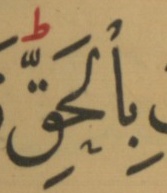 بِالْحَقِّ ط